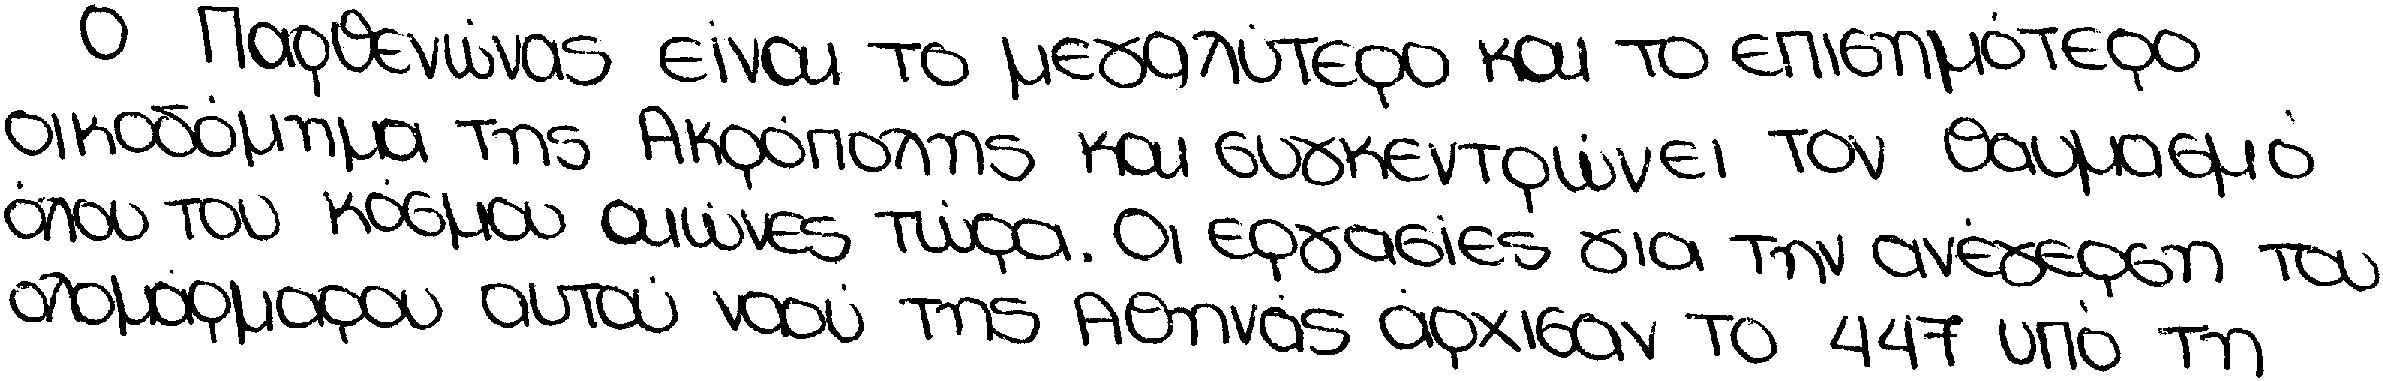 Ο Παρθενώνας είναι το μεγαλύτερο και το επισημότερο
οικοδόμημα της Ακρόπολης και συγκεντρώνει τον θαυμασμό
όλου του κόσμου αιώνες τώρα. Οι εργασίες για την ανέγερση του
ολομάρμαρου αυτού ναού της Αθηνάς άρχισαν το 447 υπό τη